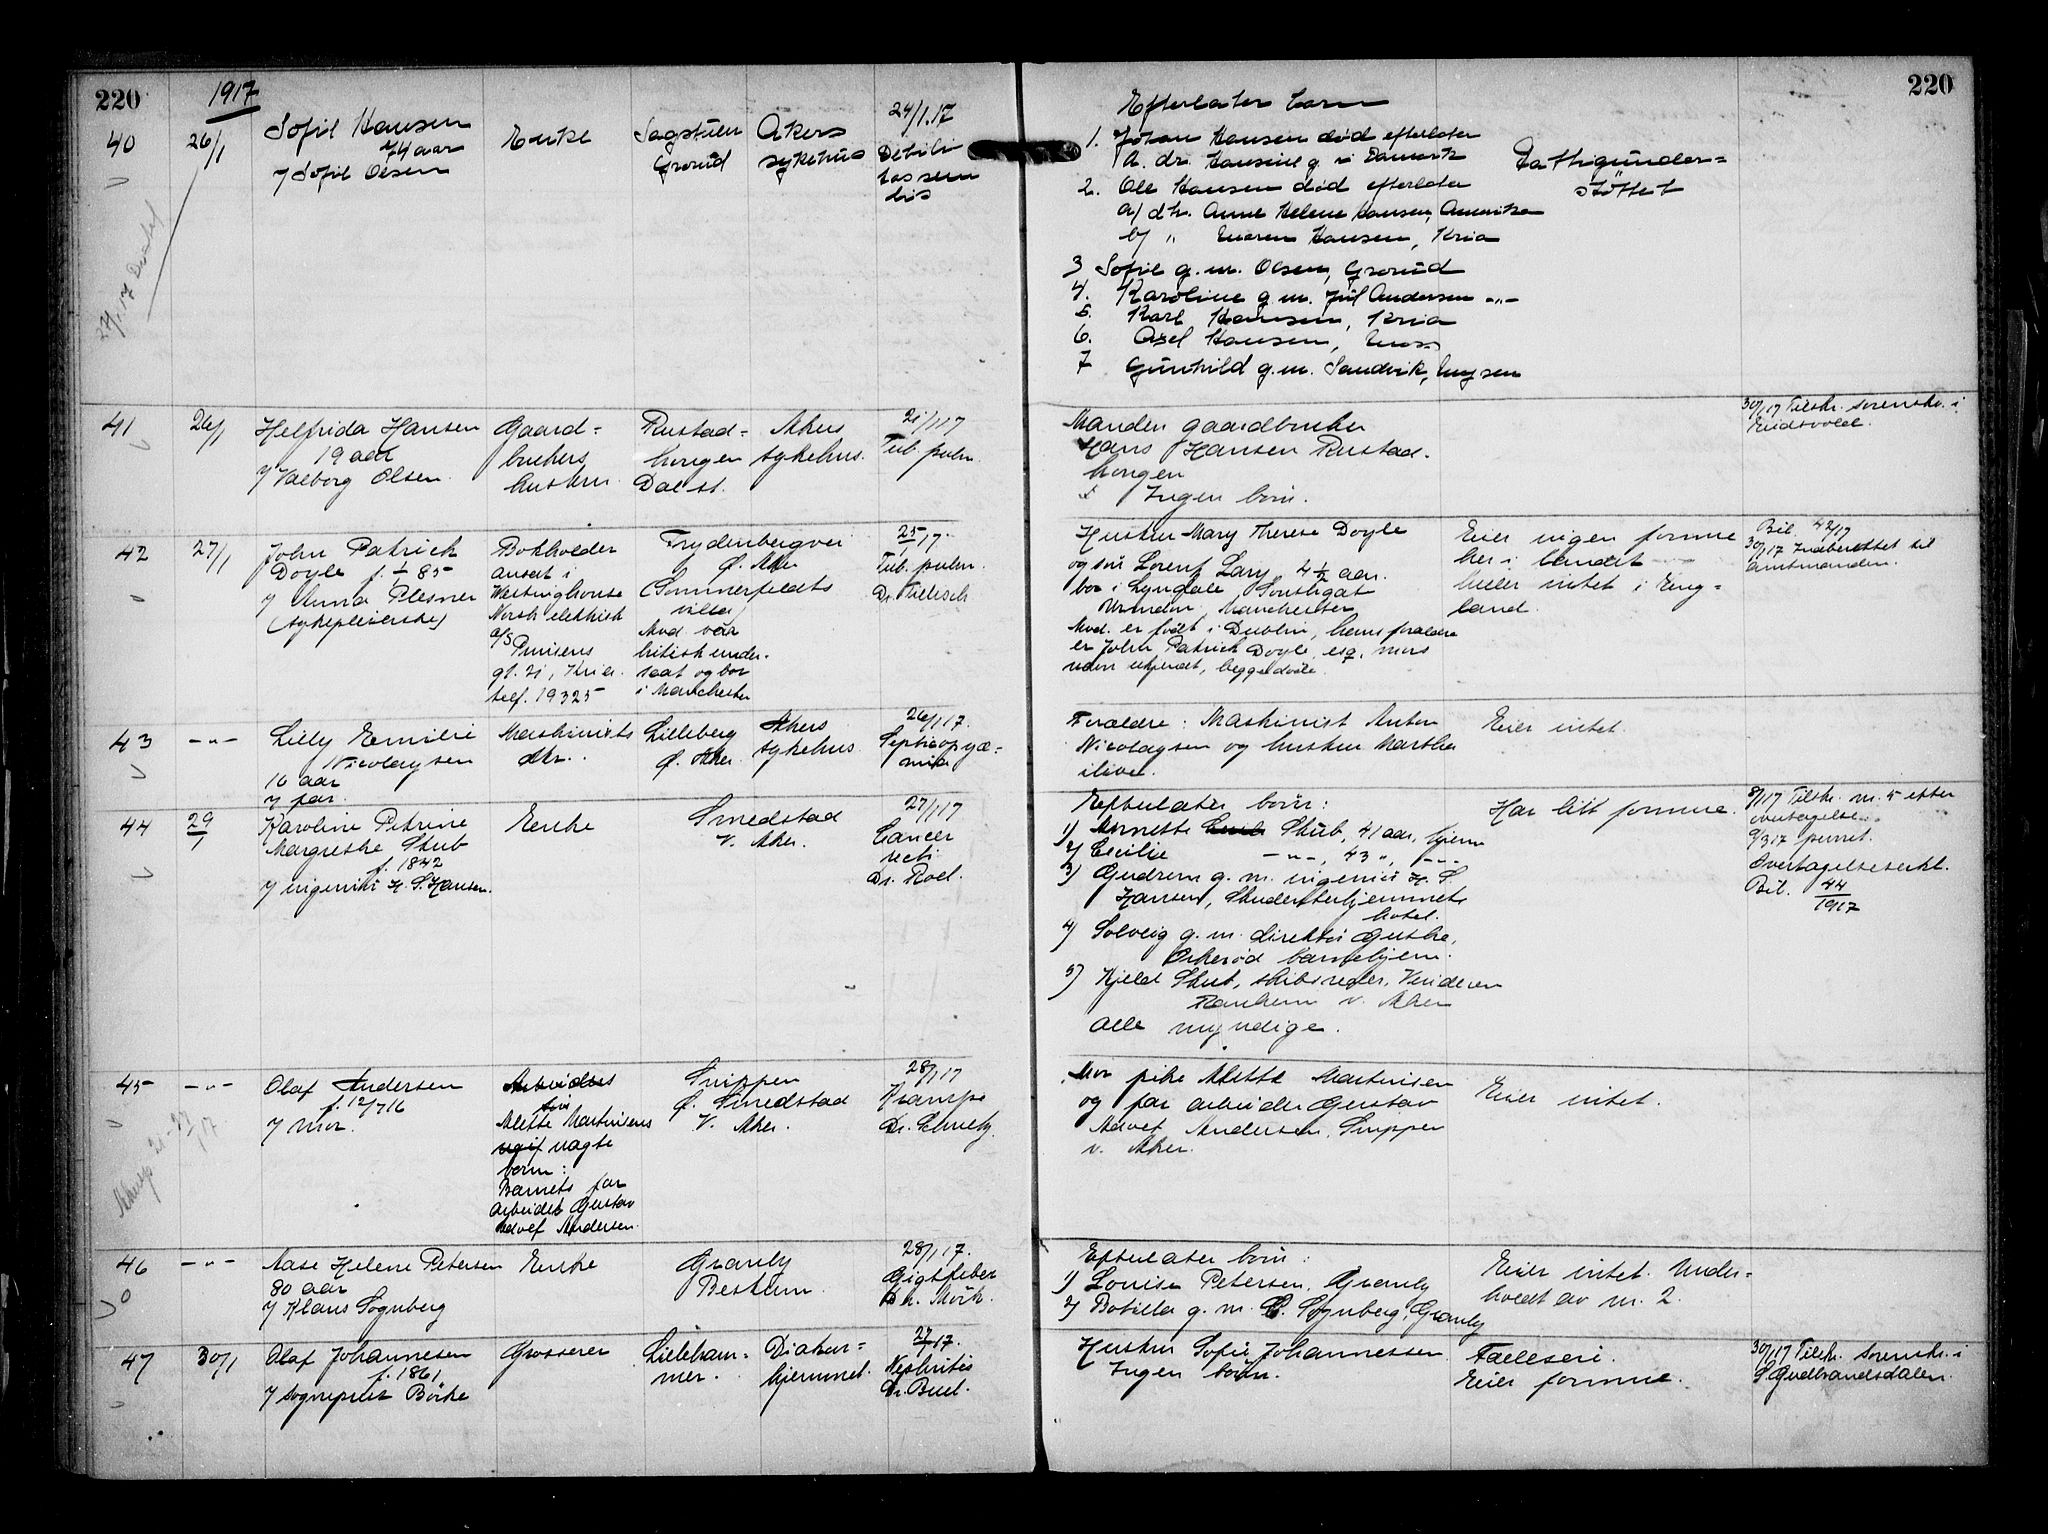 220
1917
220
40
26/1
Sofie Hansen
74 aar
v/ Sofie Olsen
Enke
Sagstuen
Grorud
Akers
sykehus
24/1.17
Debili
tas seni
lis
Efterlater barn
1. Johan Hansen død efterlater
a. dr. Hansine g. i Danmark
2. Ole Hansen død efterlater
a/ dtr. Anne Helene Hansen, Amerika
b/ " Maren Hansen, Kria
3 Sofie g.m. Olsen, Grorud
4. Karoline g.m. Jul Andersen -"-
5. Karl Hansen, Kria
6. Axel Hansen, Moss
7 Gunhild g.m. Sandvik, Mysen
Fattigunder=
støttet
41
26/1
Helfrida Hansen
19 aar
v/ Valborg Olsen.
Gaard=
brukers
hustru.
Rustad=
hougen
Dal st.
Akers
sykehus.
21/1 17
Tub. pulm.
Manden gaardbruker
Hans Hansen Rustad.
hougen
Ingen børn.
30/1 17 Tilskr. sorenskr. i
Eidsvold.
42
27/1
John Patrick
Doyle f. 1/1 85
v/ Anna Plesner
(sykepleierske)
Bokholder
ansat i
Westinghouse
Norsk elektrisk
a/s Prinsens
gt. 21, Kria.
telf. 19325
Frydenbergvei
Ø. Aker
(Sommerfeldts
villa)
Avd. var
britisk under.
saat og bor
i Manchester
25/1 17.
Tub. pulm.
Hustru Mary Therese Doyle
og søn Lorent Lary 4 1/2 aar.
bor i Lyndale, Southgat
Urmston, Manchester
Avd. er født i Dublin, hans foraldre
er John Patrick Doyle, esq, mors
navn ukjendt, begge døde.
Eier ingen formue
her i landet
heller intet i Eng=
land.
Bil. 42/17
30/1 17 Indberettet til
amtmanden.
43
-"-
Lilly Emilie
Nicolaysen
10 aar
v/ far.
Maskinists
dtr.
Lilleberg
Ø. Aker.
Akers
sykehus.
26/1 17.
Septicopyæ=
mia
Forældre: Maskinist Anton
Nicolaysen og hustru Martha
ilive.
Eier intet.
44
29/1
Karoline Petrine
Margrethe Stub
f. 1842
v/ ingeniør H. S. Hansen.
Enke
Smedstad
V. Aker.
27/1 17
Cancer
recti
Dr. Roll.
Efterlater børn:
1) Annette Stub, 41 aar, hjeme
2) Cecilie -"-, 43 ", -"-
3) Gudrun g. m. ingeniør H. S.
Hansen, Studenterhjemmets
hotel.
4) Solveig g. m. direktør Guthe,
Orkerød barnehjem.
5) Kjeld Stub, skibsreder, Vinderen
Ranheim v. Aker
Alle myndige.
Har litt formue.
8/1 17 Tilskr. nr. 5 efter
overtagelse.
9/3 17 purret.
Overtagelseserkl.
Bil. 44/1917
45
-"-
Olaf Andersen
f. 12/7 16
v/ Mor.
Arbeiders
søn
Alette Martinsens
uegte
barn:
Barnets far
arbeider Gustav
Advef Andersen.
Snippen
Ø. Smedstad
V. Aker.
28/1 17
Krampe
Mor pike Alette Martinsen
og far arbeider Gustav
Advef Andersen, Snippen
v. Aker.
Eier intet.
46
-"-
Aase Helene Petersen
80 aar
v/ Klaus Sognberg
Enke
Granly
Bestum.
28/1 17.
Gigtfeber
Dr. Mørk.
Efterlater børn:
1) Louise Petersen, Granly
2) Botilla g. m. C. Sognberg, Granly
Eier intet. Under=
holdt av nr. 2.
47
30/1
Olaf Johannesen
f. 1861
v/ sogneprest Börke
Grosserer
Lilleham=
mer.
Diakon=
hjemmet.
27/1 17.
Nephritis
Dr. Bull.
Hustru Sofie Johannessen
Ingen børn.
Fælleseri.
Eier formue.
30/1 17 Tilskr. sorenskr. i
S Gudbrandsdalen.